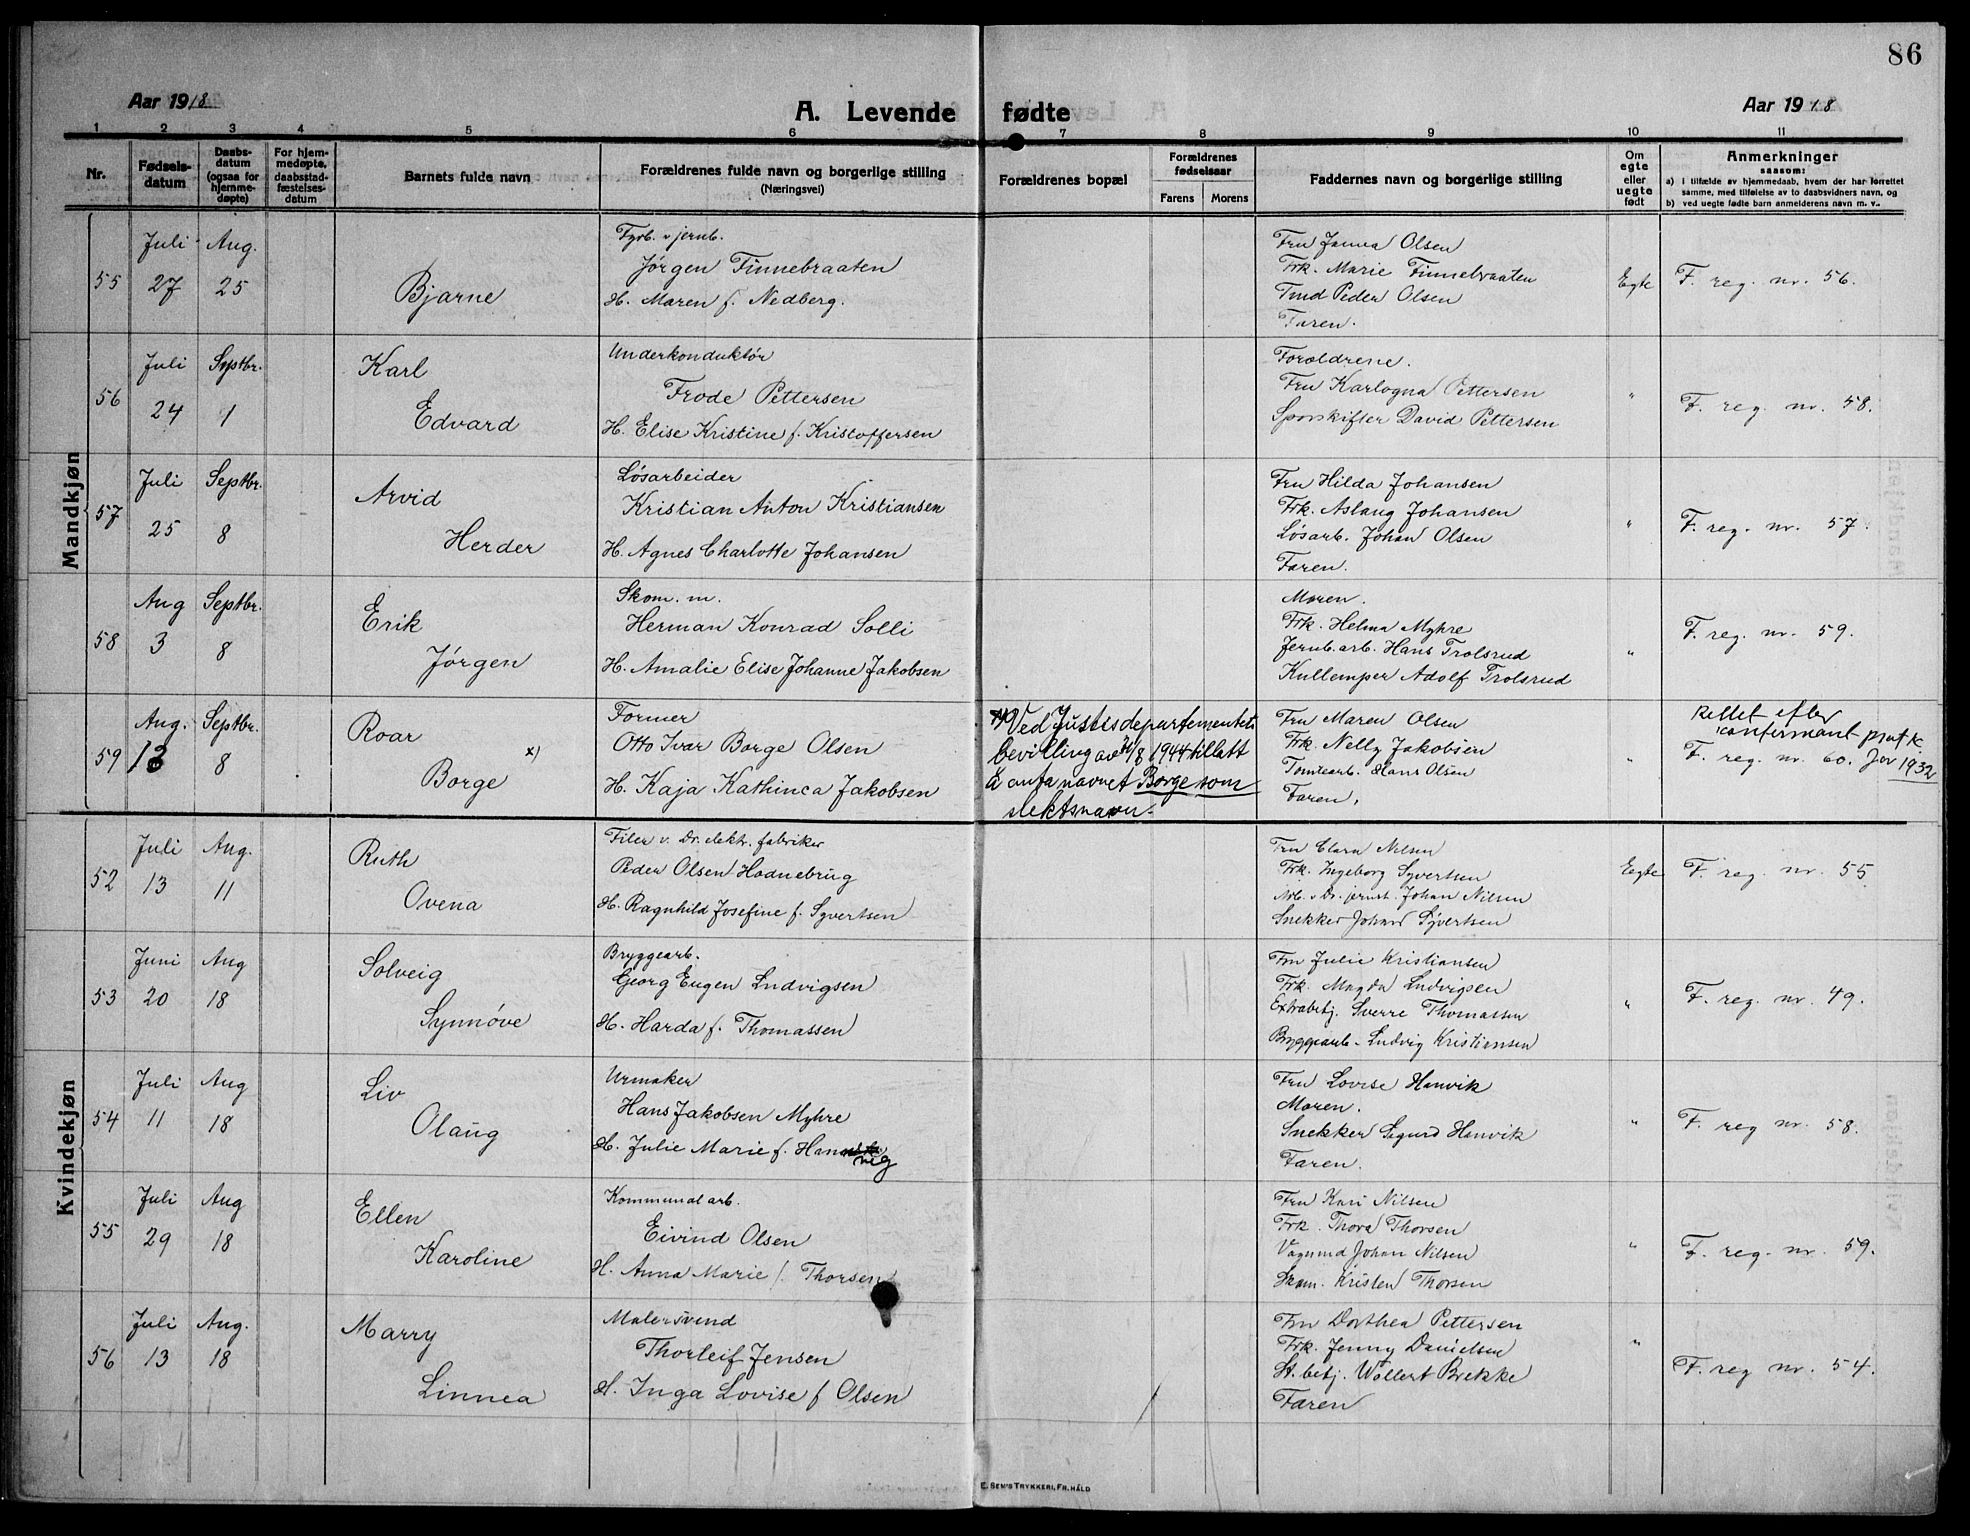 86
Aar 1918
A. Levende fødte
Aar 1918
1 2 3 4 5 6 7 8 9 10 11
Nr.
Fødselsdatum
Daabsdatum (ogsaa for hjemmedøpte)
For hjemmedøpte, daabsstadfæstelsesdatum
Barnets fulde navn
Forældrenes fulde navn og borgerlige stilling
(Næringsvei)
Forældrenes bopæl
Forældrenes fødselsaar
Farens Morens
Faddernes navn og borgerlige stilling
Om egte eller uegte født
Anmerkninger
saasom:
a) i tilfælde av hjemmedaab, hvem der har forrettet
samme, med tilføielse av to daabsvidners navn, og
b) ved uegte fødte barn anmelderens navn m. v..
Mandkjøn
55
Juli 27
Aug. 25
Bjarne
Fyrb. v. jernb.
Jørgen Finnebraaten
H. Maren f. Nedberg.
Fru Janna Olsen
Frk. Marie Finnebraaten
Peder Olsen
Faren.
Egte
F. reg. nr. 56.
56
Juli 24
Septbr. 1
Karl
Edvard
Underkonduktør
Frode Pettersen
H. Elise Kristine f. Kristoffersen
Forældrene.
Fru Karlogna Pettersen
Sporskifter David Pettersen
"
F. reg. nr. 58.
57
Juli 25
Septbr. 8
Arvid
Herder
Løsarbeider
Kristian Anton Kristiansen
H. Agnes Charlotte Johansen
Fru Hilda Johansen
Frk. Aslaug Johansen
Løsarb. Johan Olsen
Faren.
"
F. reg. nr. 57.
58
Aug 3
Septbr. 8
Erik
Jørgen
Skom. m.
Herman Konrad Solli
H. Amalie Elise Johanne Jakobsen
Moren.
Frk. Helma Myhre
Jernb. arb. Hans Trolsrud
Kullemper Adolf Trolsrud
"
F. reg. nr. 59.
59
Aug. 13
Septbr. 8
Roar x)
Borge
Former
Otto Ivar Borge Olsen
H. Kaja Kathinca Jakobsen
x) Ved Justisdepartementets
bevilling av /8 1944 tillatt
å anta navnet Borge som
slektsnavn.
Fru Maren Olsen
Frk. Nelly Jakobsen
Tomtearb. Hans Olsen
Faren.
"
Rettet efter
konfirmant
F. reg. nr. 60. 1932
Kvindekjøn
52
Juli 13
Aug. 11
Ruth
Ovena
Filer v. Dr. elektr. fabriker
Peder Olsen Hodnebrug
H. Ragnhild Josefine f. Syvertsen
Fru Clara Nilsen
Frk. Ingeborg Syvertsen
Arb. v. Dr. jernst. Johan Nilsen
Snekker Johan Syvertsen
Egte
F. reg. nr. 55
53
Juni 20
Aug 18
Solveig
Synnøve
Bryggearb.
Georg Eugen Ludvigsen
H. Harda f. Thomassen
Fru Julie Kristiansen
Frk. Magda Ludvigsen
Extrabetj. Sverre Thomassen
Bryggearb. Ludvig Kristiansen
"
F. reg. nr. 49.
54
Juli 11
Aug 18
Liv
Olaug
Urmaker
Hans Jakobsen Myhre
H. Julie Marie f. Han vig
Fru Lovise Hanvik
Moren.
Snekker Sigurd Hanvik
Faren.
"
F. reg nr. 58.
55
Juli 29
Aug 18
Ellen
Karoline
Kommunal arb.
Eivind Olsen
H. Anna Marie f. Thorsen
Fru Kari Nilsen
Frk. Thora Thorsen
Vognmd Johan Nilsen
Kristen Thorsen
"
F. reg. nr. 59.
56
Juli 13
Aug. 18
Marry
Linnea
Malersvend
Thorleif Jensen
H. Inga Lovise f Olsen
Fru Dorthea Pettersen
Frk. Jenny Danielsen
St. betj. Wollert Brekke
Faren
"
F. reg nr. 54.
E. SEM'S TRYKKERI, FR.HALD